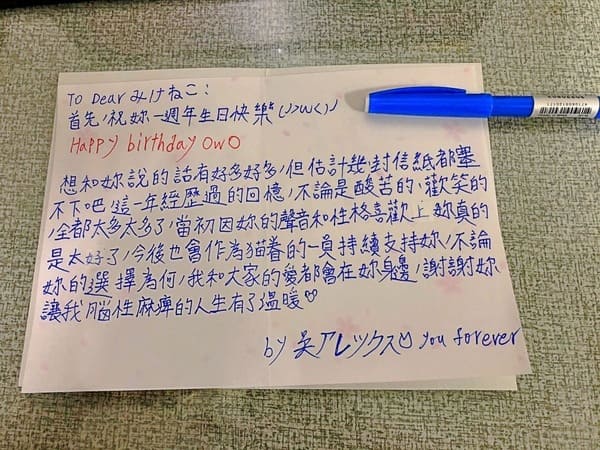 To Dear みけねこ:
首先,祝妳一週年生日快樂(ノ>ω<)ノ
Happy birthday OwO
想和妳說的話有好多好多,但估計幾封信紙都塞
不下吧,這一年經歷過的回憶,不論是酸苦的,歡笑的
,全都太多太多了,當初因妳的聲音和性格喜歡上妳真的
是太好了,今後也會作為猫眷的一員持續支持妳,不論
妳的選擇為何,我和大家的愛都會在妳身邊,謝謝妳
讓我腦性麻痺的人生有了溫暖♡
by 吳アレックス♡ you forever